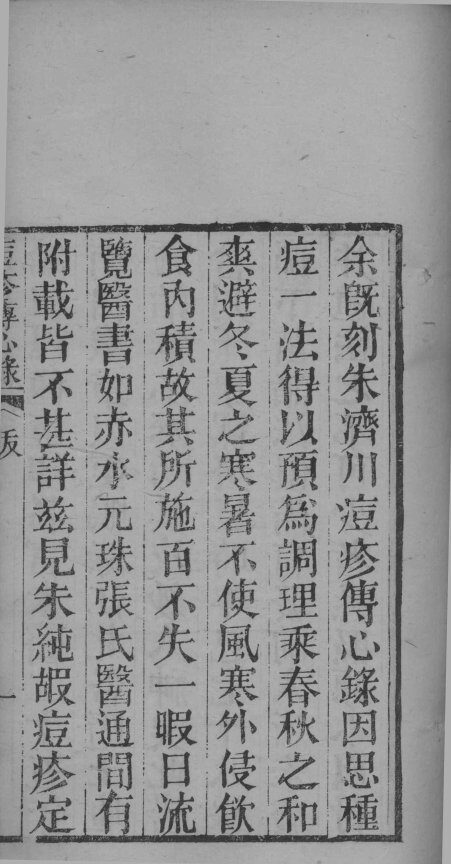 余旣刻朱濟川痘疹傳心錄因思種
痘一法得以預爲調理乘春秋之和
爽避冬夏之寒暑不使風寒外侵飮
食內積故其所施百不失一暇日流
覽醫書如赤水元珠張氏醫通間有
附載皆不甚詳茲見朱純嘏痘疹定
痘疹傳心錄 跋 一